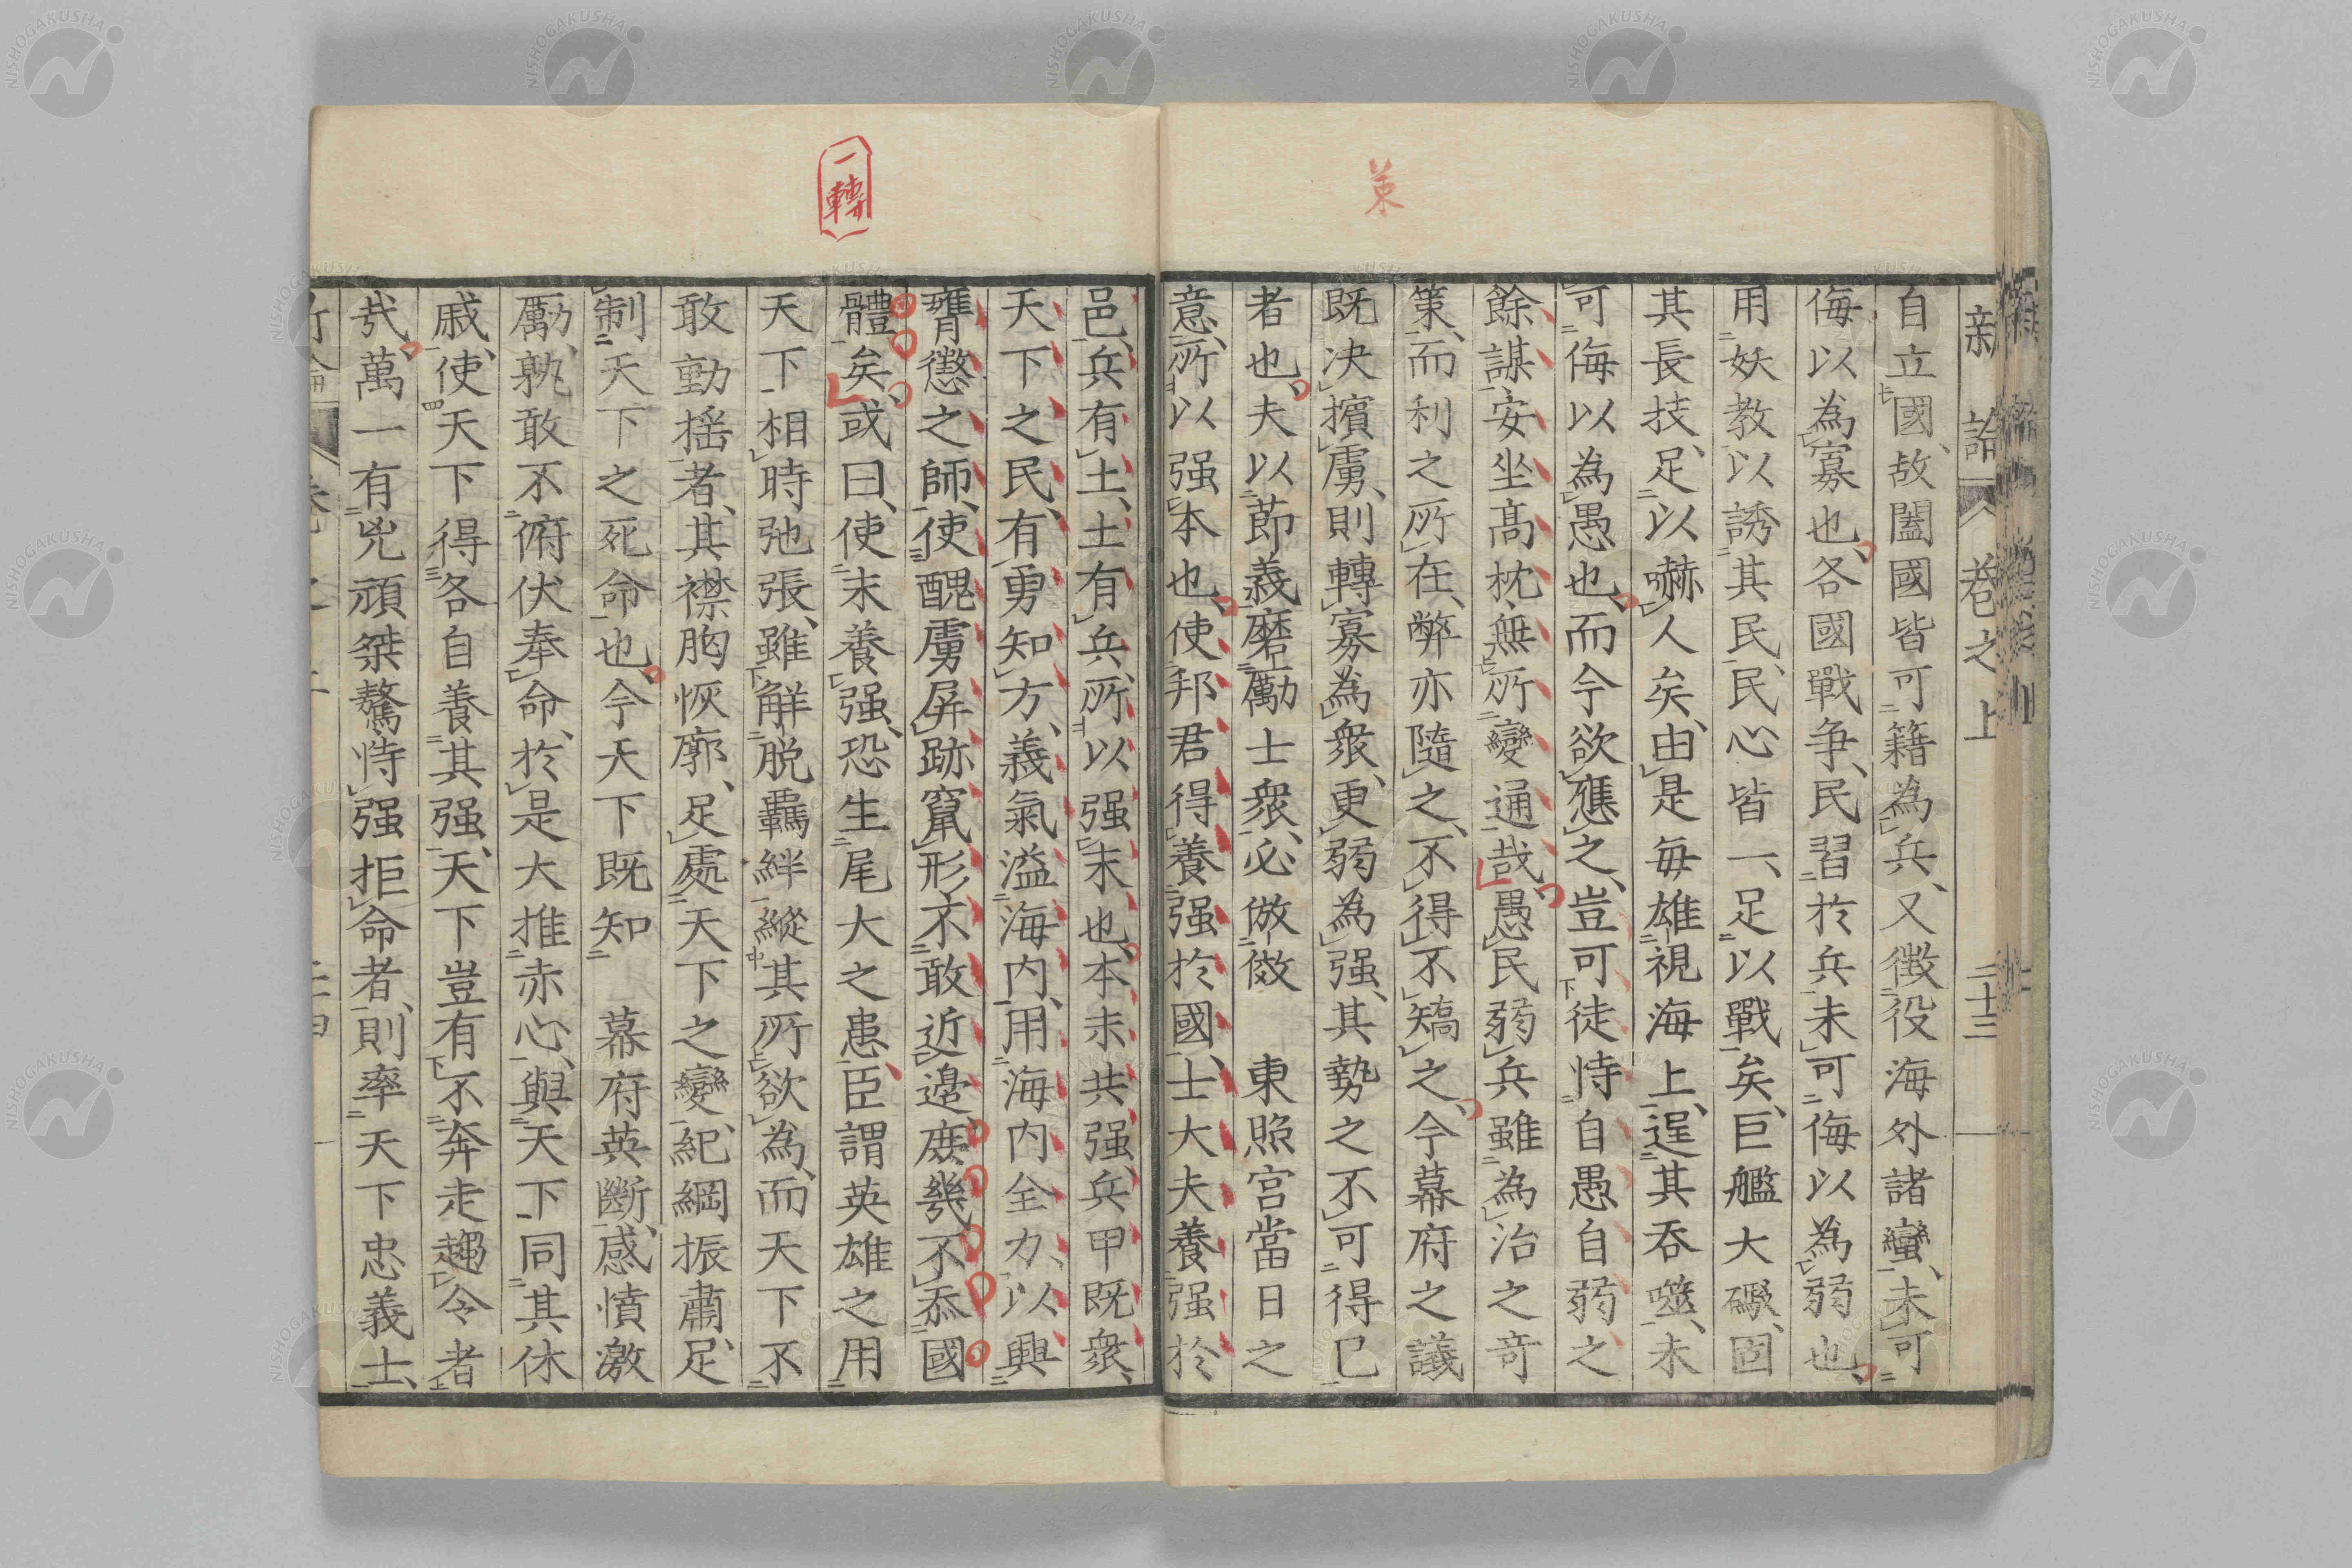 新論 卷之上 二十三
自立國、故闔國皆可籍為兵、又徵役海外諸蠻、未可
侮以為寡也、各國戰爭、民習於兵、未可侮以為弱也、
用妖教以誘其民、民心皆一、足以戰矣、巨艦大礮、固
其長技、足以嚇人矣、由是每雄視海上、逞其吞噬、未
可侮以為愚也、而今欲應之、豈可徒恃自愚自弱之
餘謀、安坐高枕、無所變通哉、愚民弱兵、雖為治之奇
策、而利之所在、弊亦隨之、不得不矯之、今幕府之議
既决擯虜、則轉寡為衆、更弱為强、其勢之不可得已
者也、夫以節義磨勵士衆、必倣傚 東照宮當日之
意、所以强本也、使邦君得養强於國、士大夫養强於
策
邑、兵有土、土有兵、所以强末也、本末共强、兵甲既衆、
天下之民、有勇知方、義氣溢海内、用海内全力、以興
膺懲之師、使醜虜屏跡竄形、不敢近邊、庶幾不忝國
體矣、或曰、使末養强、恐生尾大之患、臣謂英雄之用
天下、相時弛張、雖解脱羈絆、縱其所欲為、而天下不
敢動搖者、其襟胸恢廓、足處天下之變、紀綱振肅、足
制天下之死命也、今天下既知 幕府英斷、感憤激
勵、孰敢不俯伏奉命、於是大推赤心、與天下同其休
戚、使天下得各自養其强、天下豈有不奔走趨令者
哉、萬一有兇頑桀驁恃强拒命者、則率天下忠義士、
一轉